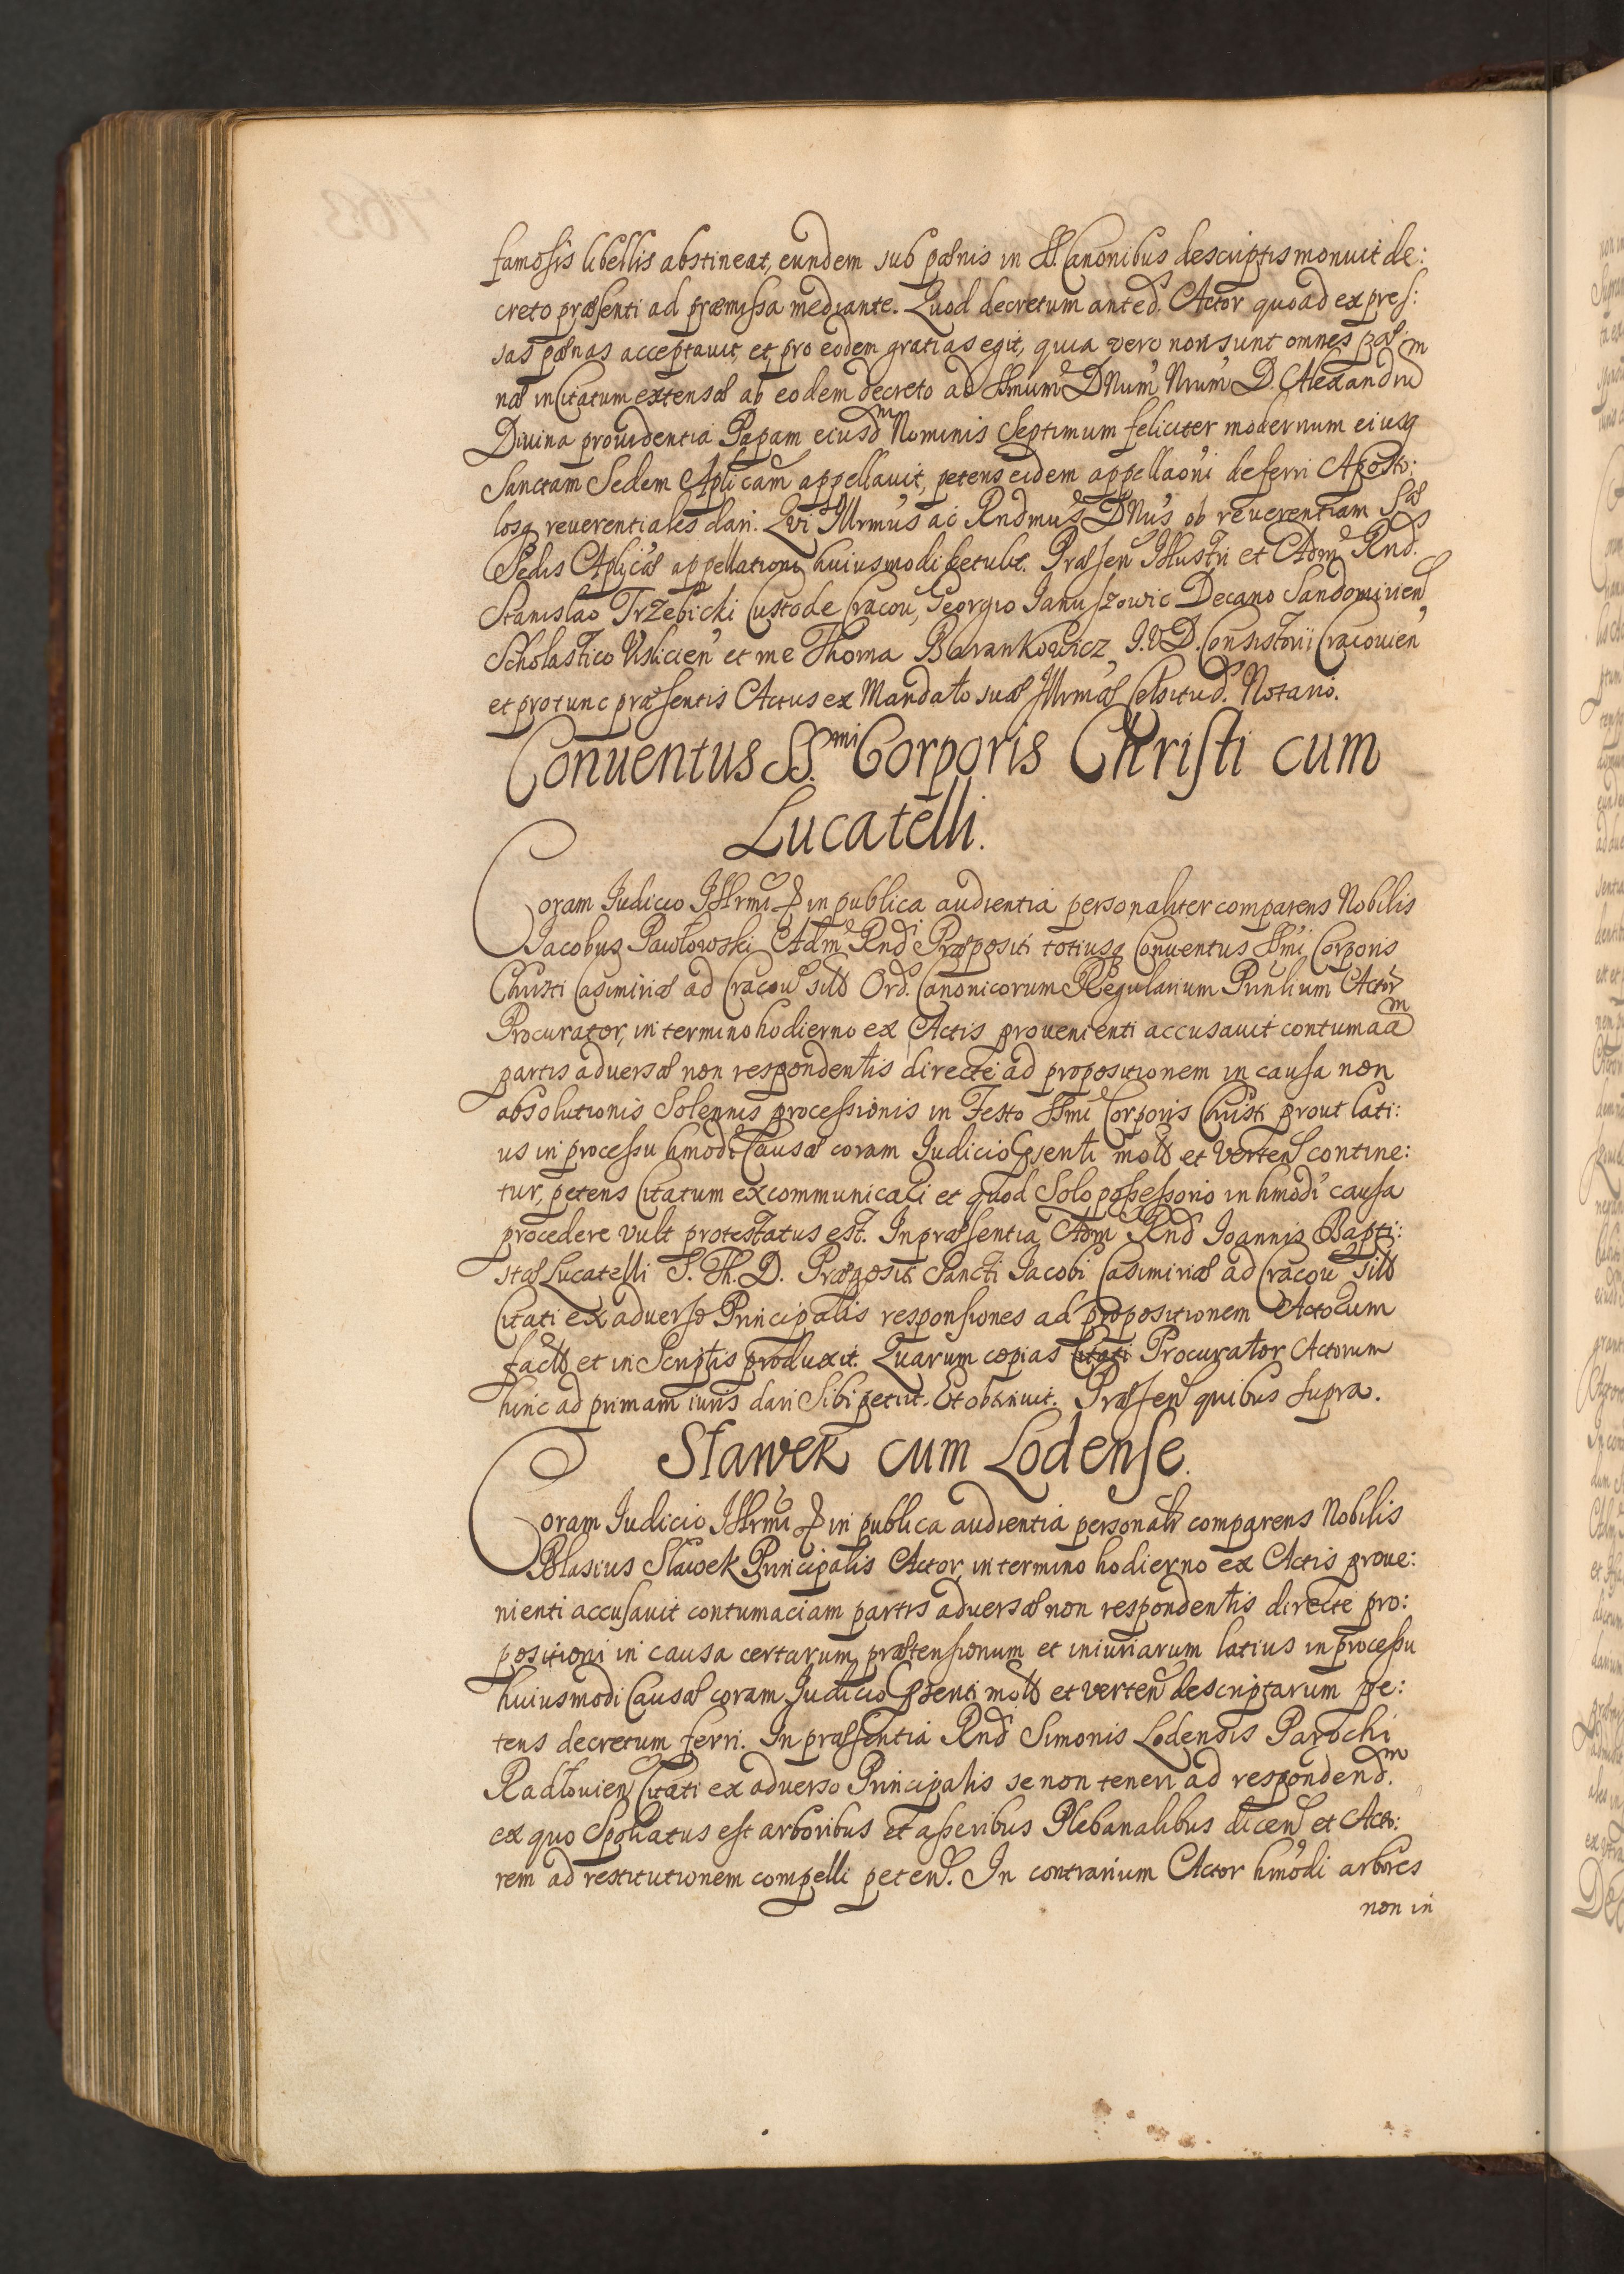 famosis libellis abstineat, eundem sub pœnis in SS. Canonibus descriptis monuit de:
creto præsenti ad præmissa mediante. Quod decretum anted. Actor quoad expres:
sas pœnas acceptavit, et pro eodem gratias egit, quia vero non sunt omnes pœ:
næ in Citatum extensæ ab eodem decreto ad SSmum DNum Nrum D. Alexandrum
Divina providentia Papam eiusdm Nominis Septimum feliciter modernum eiusq
Sanctam Sedem Aplicam appellavit, petens eidem appellaoni deferri Aposto:
losq reverentiales dari. Qui Illrmus ac Rndmus DNus ob reverentiam Sæ
Sedis Aplicæ appellationi huiusmodi detulit. Præsen Illustri et Adm Rnds.
Stanislao Trzebicki Custode Cracou, Georgio Januszowic Decano Sandomirien
Scholastico Vislicien et me Thoma Barankowicz J.V.D. Consistorii Cracouien
et protunc præsentis Actus ex Mandato suæ Illrmæ Celsitud. Notario.
Conuentus SS.mi Corporis Christi cum
Lucatelli.
Coram Judicio Illrmi in publica audientia personaliter comparens Nobilis
Jacobus Pawłowski Adm Rnd Præpositi totiusq Conuentus SSmi Corporis
Christi Casimiriæ ad Cracou Ord. Canonicorum Regularium Actor
Procurator, in termino hodierno ex Actis prouenienti accusauit contumaciam
partis aduersæ non respondentis directe ad propositionem in causa non
absolutionis Solennis processionis in Festo SSmi Corporis Christi prout lati:
us in processu hmodi Causæ coram Judicio psenti mot et verten contine:
tur, petens Citatum excommunicari et quod Solo possessorio in hmodi causa
procedere vult protestatus est. In præsentia Adm Rnd Joannis Bapti:
stæ Lucatelli S. Th. D. Præpositi Sancti Jacobi Casimiriæ ad Cracou
Citati ex aduerso Principalis responsiones ad propositionem Actorum
fact et in Scriptis produxit. Quarum copias Citati Procurator Actorum
hinc ad primam iuris dari Sibi petiit. Et obtinuit. Præsen quibus supra.
Sławek cum Lodense.
Coram Judicio Illrmi in publica audientia personalr comparens Nobilis
Blasius Sławek Principalis Actor, in termino hodierno ex Actis proue:
nienti accusauit contumaciam partis aduersæ non respondentis directe pro:
positioni in causa certarum prætensionum et iniuriarum latius in processu
huiusmodi Causæ coram Judicio psenti mot et verten descriptarum pe:
tens decretum ferri. In præsentia Rnd Simonis Lodensis Parochi
Radłouien Citati ex aduerso Principalis se non teneri ad respondendm.
ex quo Spoliatus est arboribus et asseribus Plebanalibus dicen et Acto:
rem ad restitutionem compelli peten. In contrarium Actor hmodi arbores
non in